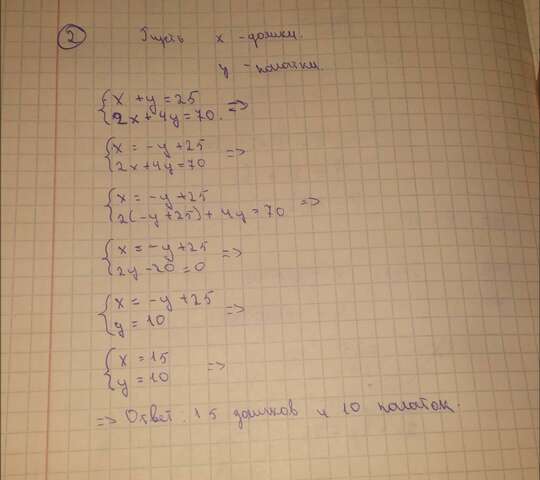 2 Пусть x - домики.
y - палатки.
{ x + y = 25
{ 2x + 4y = 70. =>
{ x = -y + 25
{ 2x + 4y = 70 =>
{ x = -y + 25
{ 2(-y + 25) + 4y = 70 =>
{ x = -y + 25
{ 2y - 20 = 0 =>
{ x = -y + 25
{ y = 10 =>
{ x = 15
{ y = 10 =>
=> Ответ: 15 домиков и 10 палаток.